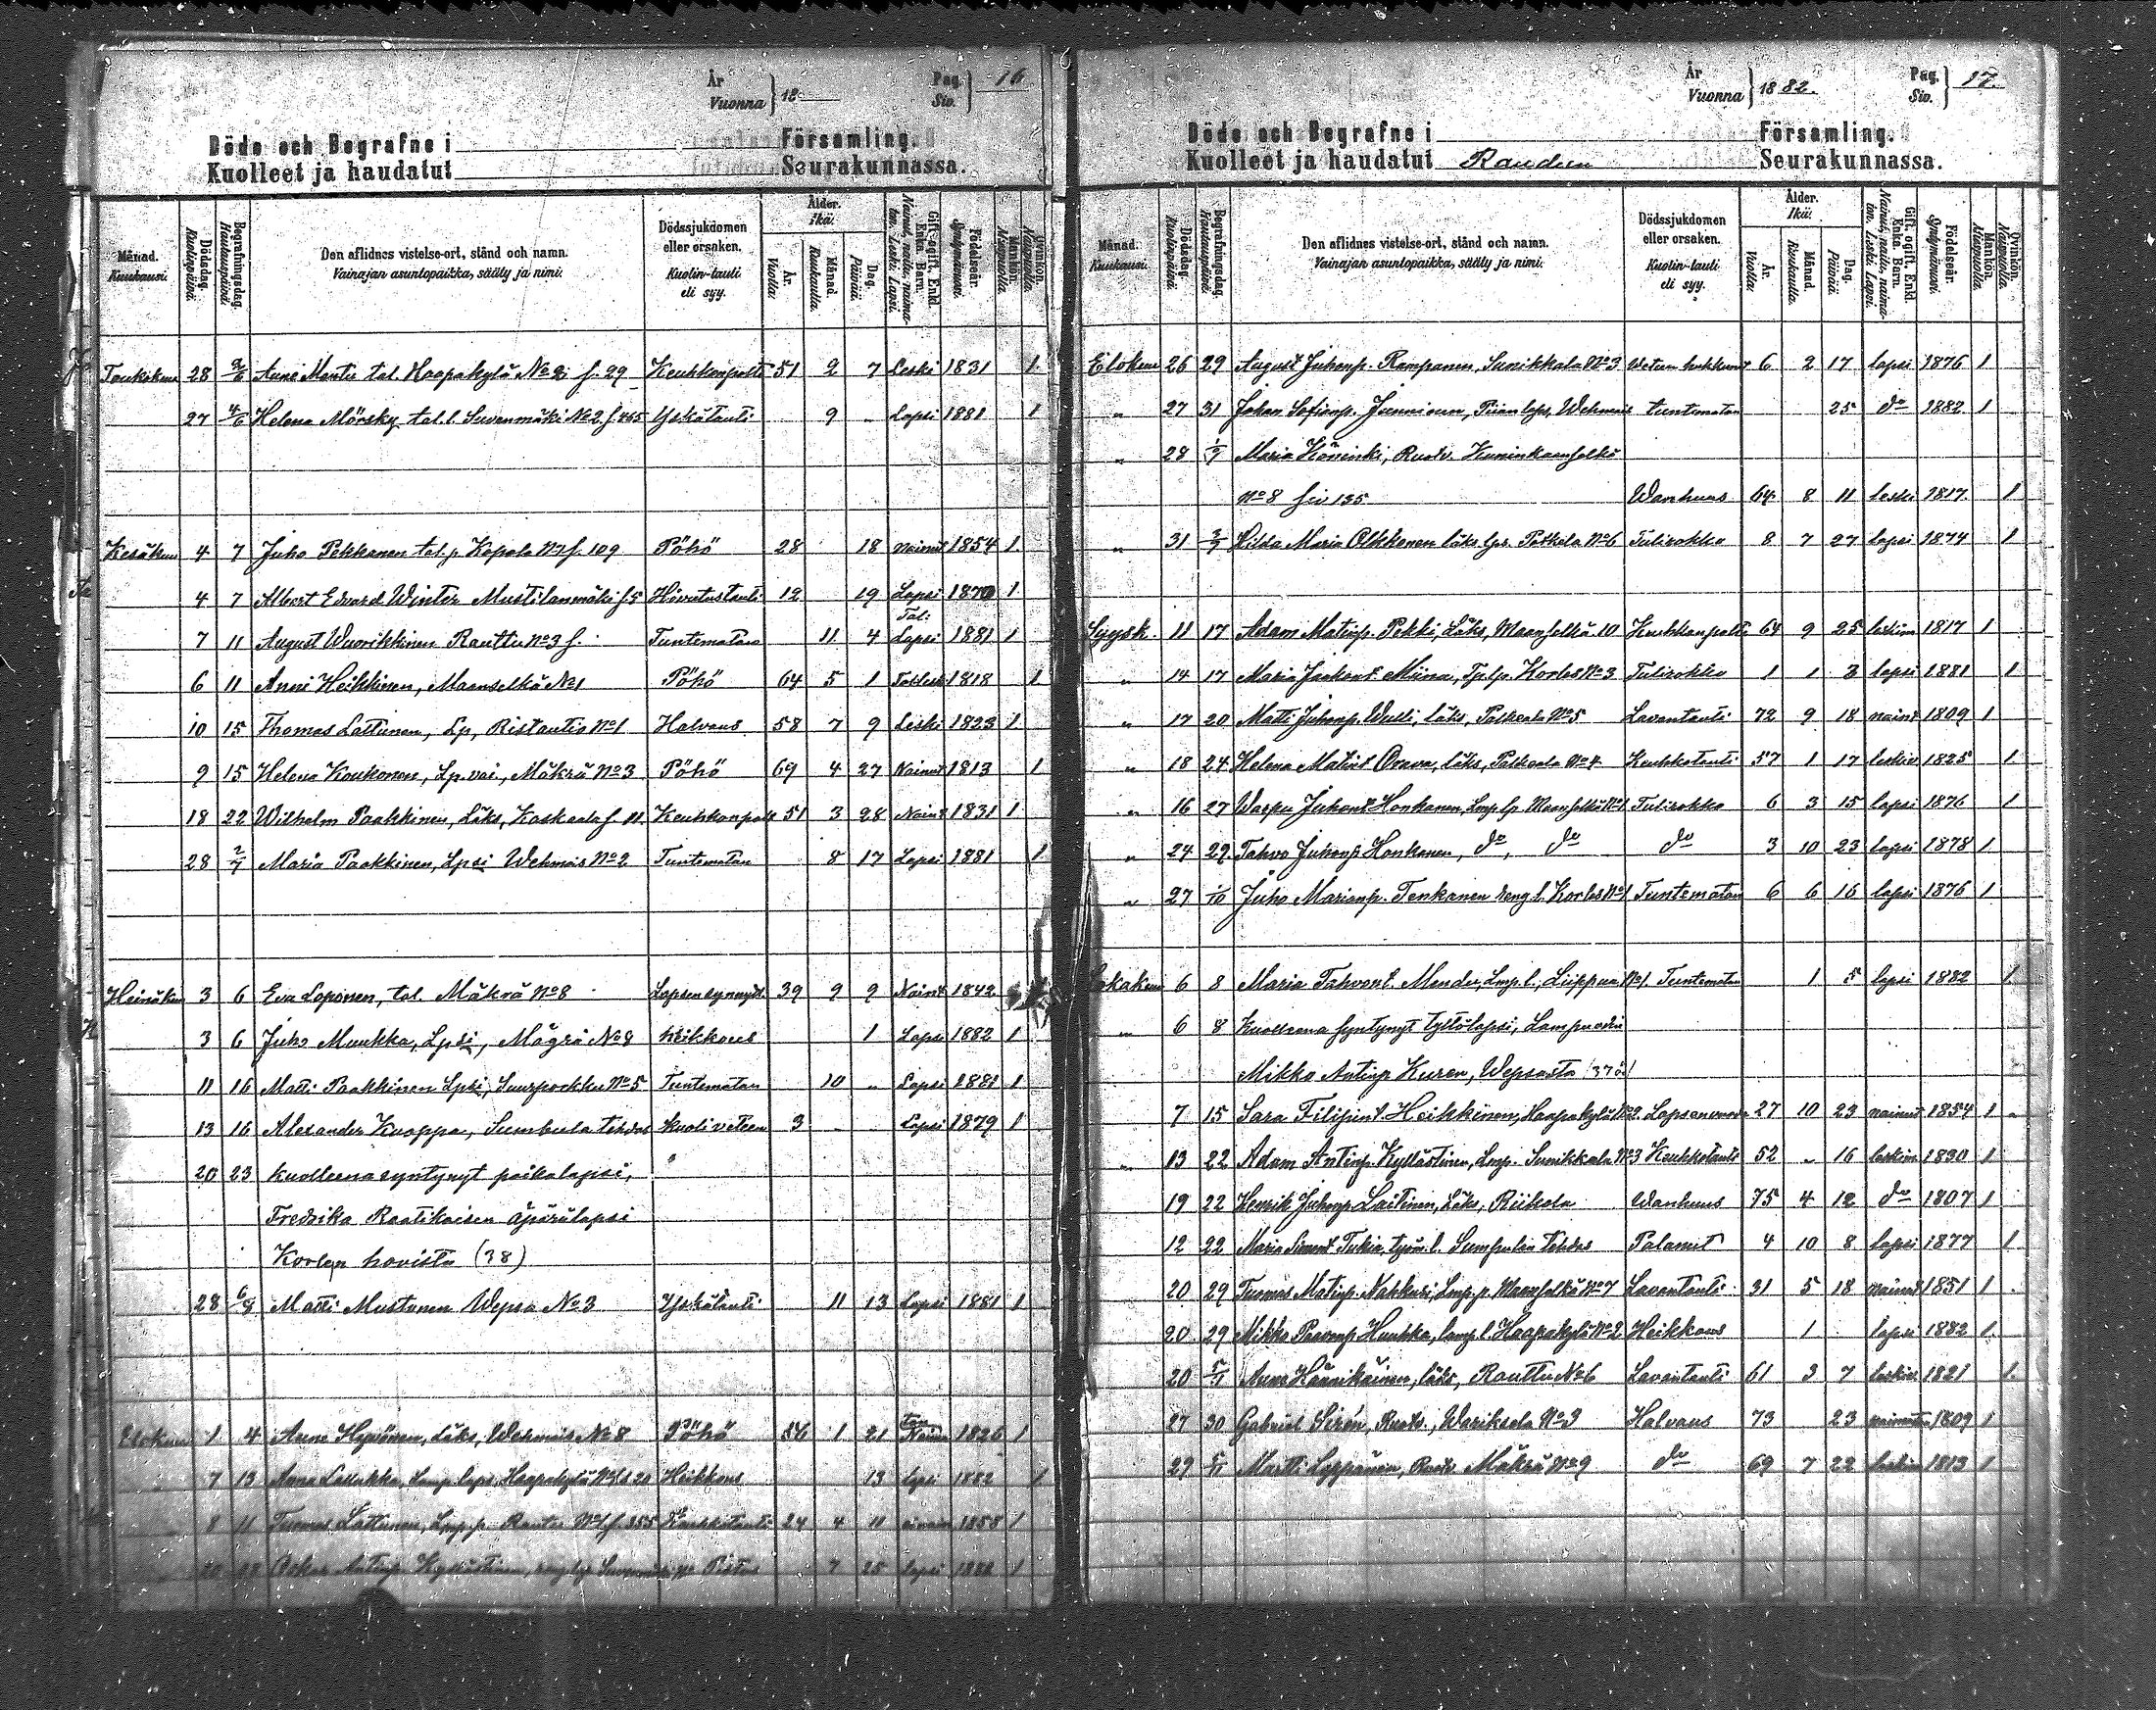 År Vuonna } 18
Pag. Siv. } 16
Döde och Begrafne i Församling.
Kuolleet ja haudatut Seurakunnassa.
Månad. Kuukausi.
Dödsdag. Kuolinpäivä.
Begrafningsdag. Hautauspäivä.
Den aflidnes vistelse-ort, stånd och namn. Vainajan asuntopaikka, sääty ja nimi.
Dödssjukdomen eller orsaken. Kuolin-tauti eli syy.
Ålder. Ikä.
År. Vuotta.
Månad. Kuukautta.
Dag. Päivää.
Gift, ogift, Enkl. Enka. Barn. Nainut, naitu, naimaton. Leski. Lapsi.
Födelseår. Syntymävuosi.
Mankön. Miespuolia.
Qvinkön. Naispuolia.
Toukokuu 28 2/6 Anni Mentu tal. Haapakylä No 2 f. 29 Keuhkonpoltt 51 2 7 Leski 1831 1.
27 4/6 Helena Mörsky tal. l. Suvenmäki No 2 f. 465 Yskätauti 9 „ Lapsi 1881 1
Kesäkuu 4 7 Juho Pekkanen tal. p. Kopala No 1 f. 109 Pöhö 28 18 Nainut 1854 1.
4 7 Albert Edvard Winter Mustilanmäki f. 5 Hivutustauti 12 19 Lapsi 1870 1
7 11 August Wuorikkinen Rauttu No 3 f. Tuntematoin 11 4 Tal: Lapsi 1881 1
6 11 Anni Heikkinen, Maanselkä No 1 Pöhö 64 5 1 1818 1
10 15 Thomas Lattunen, Lp, Ristautio No 1 Halvaus 58 7 9 Leski 1823 1.
9 15 Helena Koukonen, Lp. vai., Mäkrä No 3 Pöhö 69 4 27 Nainut 1813 1
18 22 Wilhelm Paakkinen, Läks, Koskaala f Keuhkonpolt 51 3 28 Naint 1831 1
28 2/7 Maria Paakkinen, Lpsi Wehmais No 2 Tuntematon 8 17 Lapsi 1881 1
Heinäkuu 3 6 Eva Loponen, tal. Mäkrä No 8 Lapsensynnyt. 39 9 9 Naint 1842
3 6 Juho Muukka, Lpsi, Mägrä No 8 heikkous 1 Lapsi 1882 1
11 16 Matti Paakkinen Lpsi, Suurporkku No 5 Tuntematon 10 „ Lapsi 1881 1
13 16 Alexander Kuoppa, Sumbula tehdas kuoli veteen 3 Lapsi 1879 1
20 23 kuolleena syntynyt poikalapsi,
Fredrika Raatikaisen äpärälapsi
Korlen hovista (38)
28 6/8 Matti Mustonen Wepsa No 3 Yskätauti 11 13 Lapsi 1881 1
Elokuu 1 4 Anni Hyvönen, Läks, Wehmais No 8 Pöhö 56 1 21 1826 1
7 13 Anna Haapakylä Heikkous 13 lapsi 1882 1
8 11 Tuomas Lattunen, Lmp. p. Rautu No 1 f. 355 Keuhkotauti 24 4 11 1858 1
Oskar Antinp. Kyllästinen, Pistos 7 25 lapsi 1882 1
År Vuonna } 1882.
Pag. Siv. } 17.
Döde och Begrafne i Församling.
Kuolleet ja haudatut Raudun Seurakunnassa.
Månad. Kuukausi.
Dödsdag. Kuolinpäivä.
Begrafningsdag. Hautauspäivä.
Den aflidnes vistelse-ort, stånd och namn. Vainajan asuntopaikka, sääty ja nimi.
Dödssjukdomen eller orsaken. Kuolin-tauti eli syy.
Ålder. Ikä.
År. Vuotta.
Månad. Kuukautta.
Dag. Päivää.
Gift, ogift, Enkl. Enka. Barn. Nainut, naitu, naimaton. Leski. Lapsi.
Födelseår. Syntymävuosi.
Mankön. Miespuolia.
Qvinkön. Naispuolia.
Elokuu 26 29 August Juhonp. Rampanen, Sunikkala No 3 Veteen hukkunut 6 2 17 lapsi 1876 1
„ 27 31 Johan Sofianp. Junninen, Piian laps. Wehmais tuntematon 25 do 1882 1
„ 28 1/9 Maria Köninki, Ruotv. Kuninkaanselkä
No 8 siv 135 Wanhuus 64 8 11 leski 1817 1
„ 31 3/9 Hilda Maria Olkkonen läks. lps. Palkela No 6 Tulirokko 8 7 27 lapsi 1874 1
Syysk. 11 17 Adam Matinp. Pekki, Läks, Maanselkä 10 Keuhkonpoltto 64 9 25 leskim 1817 1
„ 14 17 Maria Jaakont. Miina, Tp. lp. Korles No 3 Tulirokko 1 1 3 lapsi 1881 1
„ 17 20 Matti Juhonp. Wulli, läks, Palkeala No 5 Lavantauti 72 9 18 naint 1809 1
„ 18 24 Helena Matint. Orava, läks, Palkeala No 4 Keuhkotauti 57 1 17 leskiv 1825 1
„ 16 27 Warpu Juhont. Honkanen, Lmp. lp. Maanselkä No 1 Tulirokko 6 3 15 lapsi 1876 1
„ 24 29 Tahvo Juhonp. Honkanen, do, do do 3 10 23 lapsi 1878 1
„ 27 1/10 Juho Marianp. Tenkanen reng. l. Korles No 1 Tuntematon 6 6 16 lapsi 1876 1
Lokakuu 6 8 Maria Tahvont. Mender, Lmp. l., Liippua No 1. Tuntematon 1 5 lapsi 1882 1.
„ 6 8 Kuolleena syntynyt tyttölapsi, Lampuodin
Mikko Antinp Kuren, Wepsasta
7 15 Sara Filipint. Heikkinen, Haapakylä No 2 27 10 23 nainut 1854 1
„ 13 22 Adam Antinp. Kyllästinen, Lmp. Sunikkala No 3 Keuhkotauti 52 „ 16 leskim 1830 1
19 22 Henrik Juhonp Laitinen, Läks, Riikola Wanhuus 75 4 12 do 1807 1
12 22 Maria Simont Tukia, työm. l. Sumpulan tehdas Palanut 4 10 8 lapsi 1877 1
20 29 Tuomas Matinp. Nakkusi, Lmp. p. Maanselkä No 7 Lavantauti 31 5 18 nainut 1851 1
20 29 Mikko Paavonp. Huukka, lamp. l. Haapakylä No 2 Heikkous 1 lapsi 1882 1
20 5/11 Anna Hännikäinen, läks, Rauttu No 6 Lavantauti 61 3 7 leskiv 1821 1.
27 30 Gabriel Sirén, Ruotv., Wariksela No 3 Halvaus 73 23 1809 1
29 5/11 Martti Leppänen, Ruotv. Mäkrä No 9 do 69 7 22 leskim 1813 1